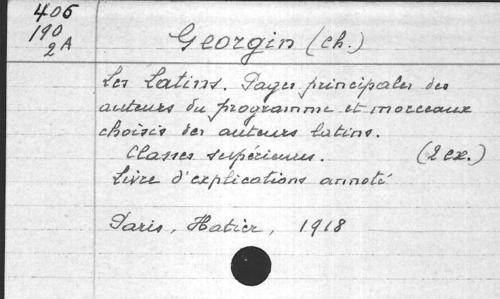 406
190
2A
Georgin (ch.)
Les Latins. Pages principales des
auteurs du programme et morceaux
choisis des auteurs latins.
Classes supérieures. (2 ex.)
Livre d'explications annoté
Paris, Hatier, 1918